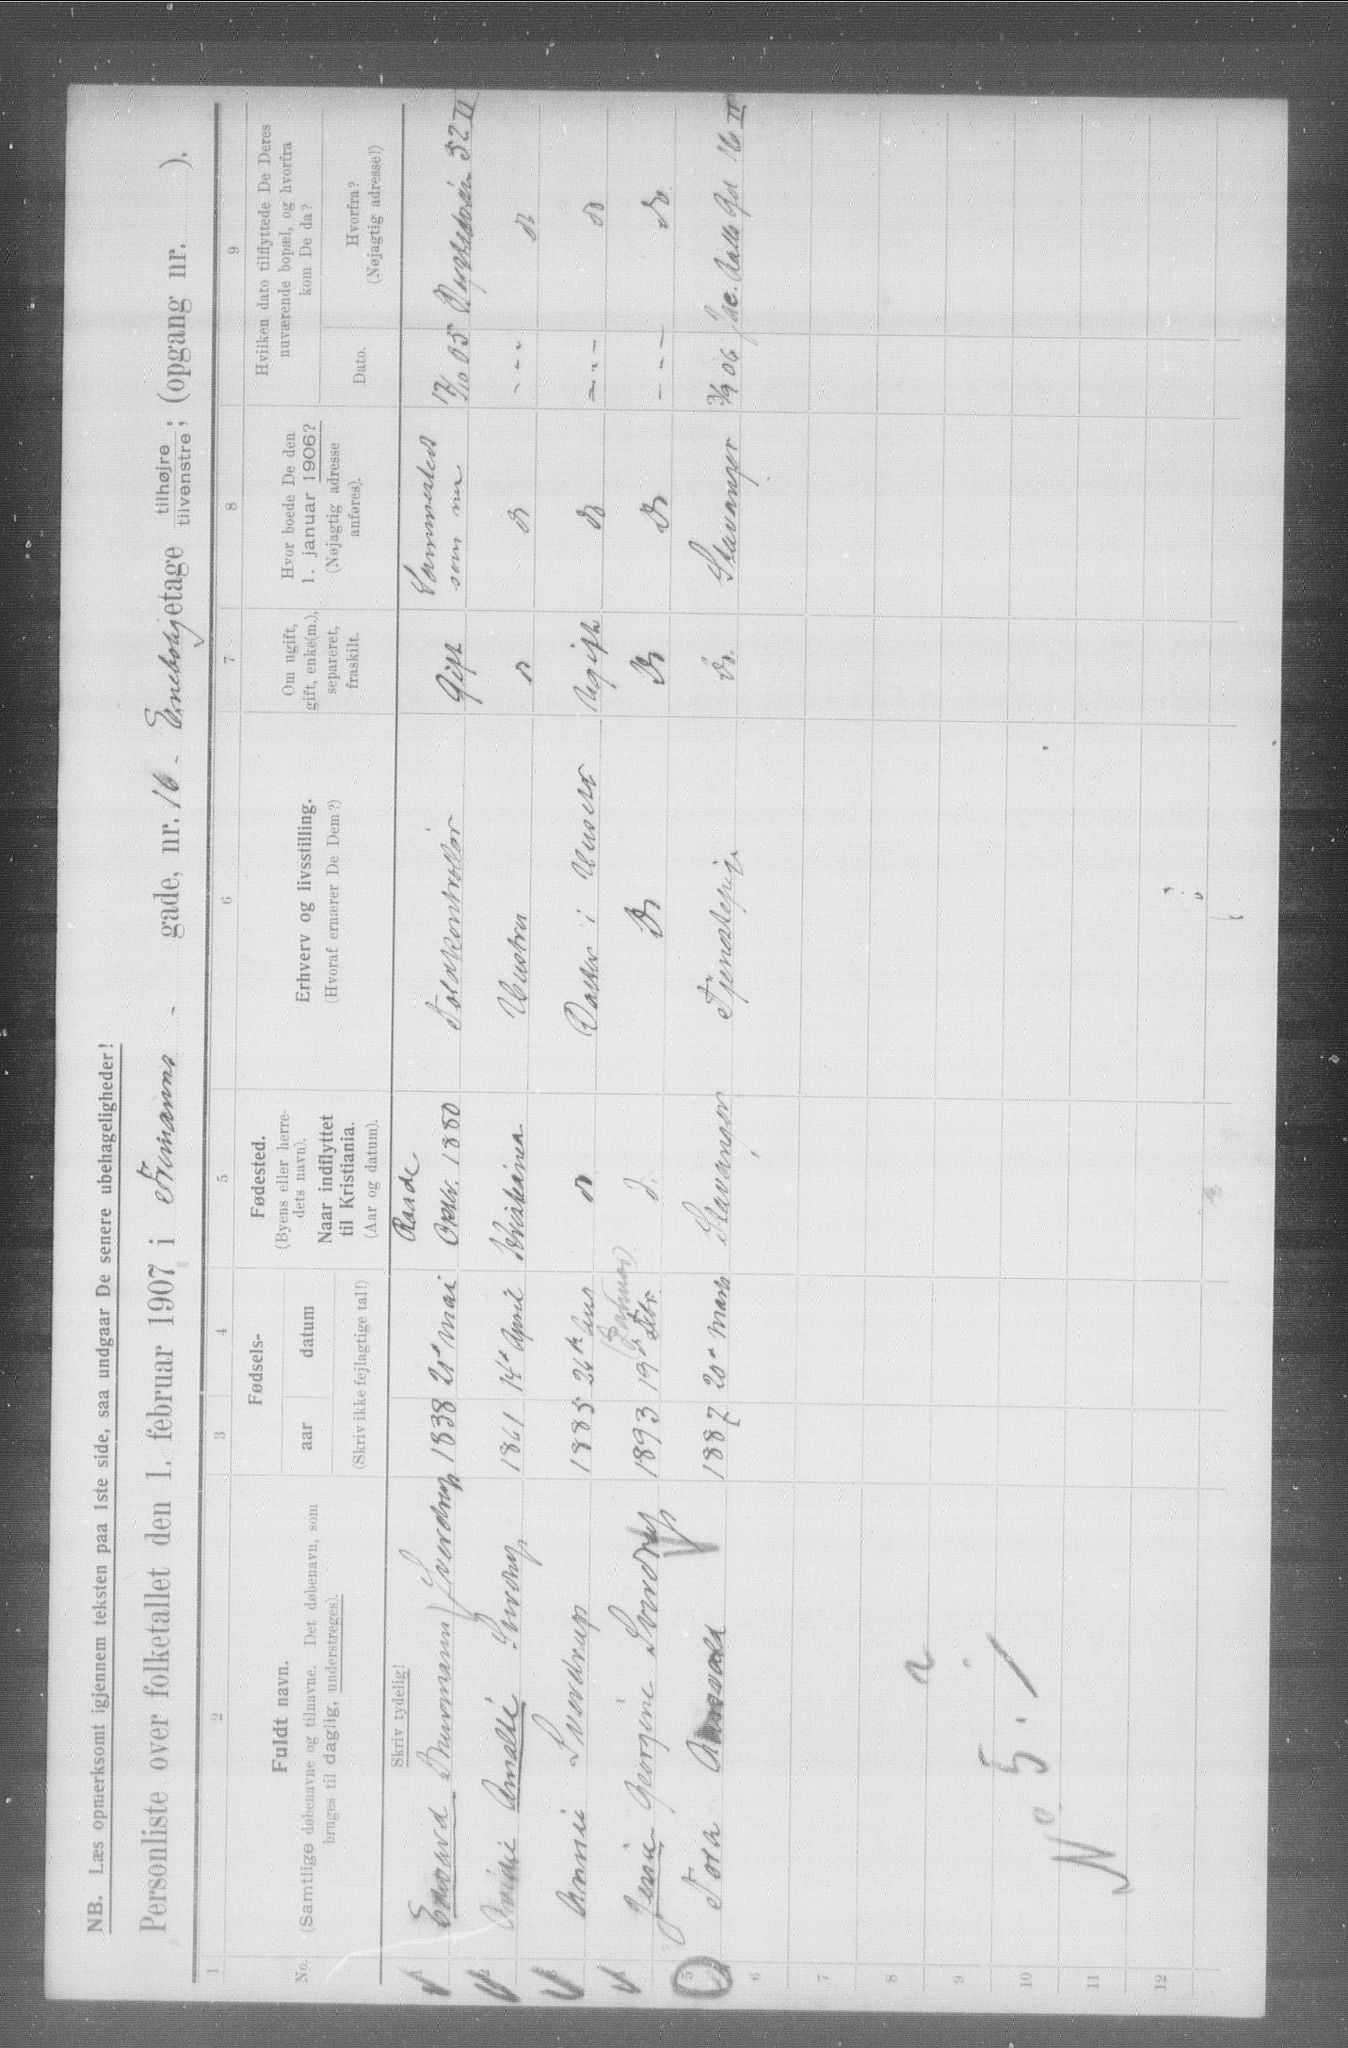 NB. Læs opmerksomt igjennem teksten paa 1ste side, saa undgaar De senere ubehageligheder!
Personliste over folketallet den 1. februar 1907 i Frimanns - gade, nr. 16 - Enebolig etage tilhøjre tilvenstre; (opgang nr. ).
1 2 3 4 5 6 7 8 9
No.
Fuldt navn.
(Samtlige døbenavne og tilnavne. Det døbenavn, som
bruges til daglig, understreges).
Fødsels-
aar datum
(Skriv ikke fejlagtige tal!)
Fødested.
(Byens eller herre-
dets navn).
Naar indflyttet
til Kristiania.
(Aar og datum).
Erhverv og livsstilling.
(Hvoraf ernærer De Dem?)
Om ugift,
gift, enke(m.),
separeret,
fraskilt.
Hvor boede De den
1. januar 1906?
(Nøjagtig adresse
anføres).
Hvilken dato tilflyttede De Deres
nuværende bopæl, og hvorfra
kom De da?
Dato.
Hvorfra?
(Nøjagtig adresse!)
Skriv tydelig!
Raade Sammesteds
1 Edvard Sverdrup 1838 21de Mai Oktbr. 1880 Toldkontrollør Gift som nu 17/10 05 32 II
2 Amalie Sverdrup 1861 14de April Kristiania Hustru D D - - - D
3 Annie Sverdrup 1885 26de D Datter i Huset Ugift D - - - D
Februar
4 Jenie Georgine Sverdrup 1893 19de Febr. D. D D D - - - D
5 Tora 1887 20de Marts Stavanger Tjenestepige D. Stavanger 3/9 06 16 II
6
7
8
9
10
11
12
2
5. /
No